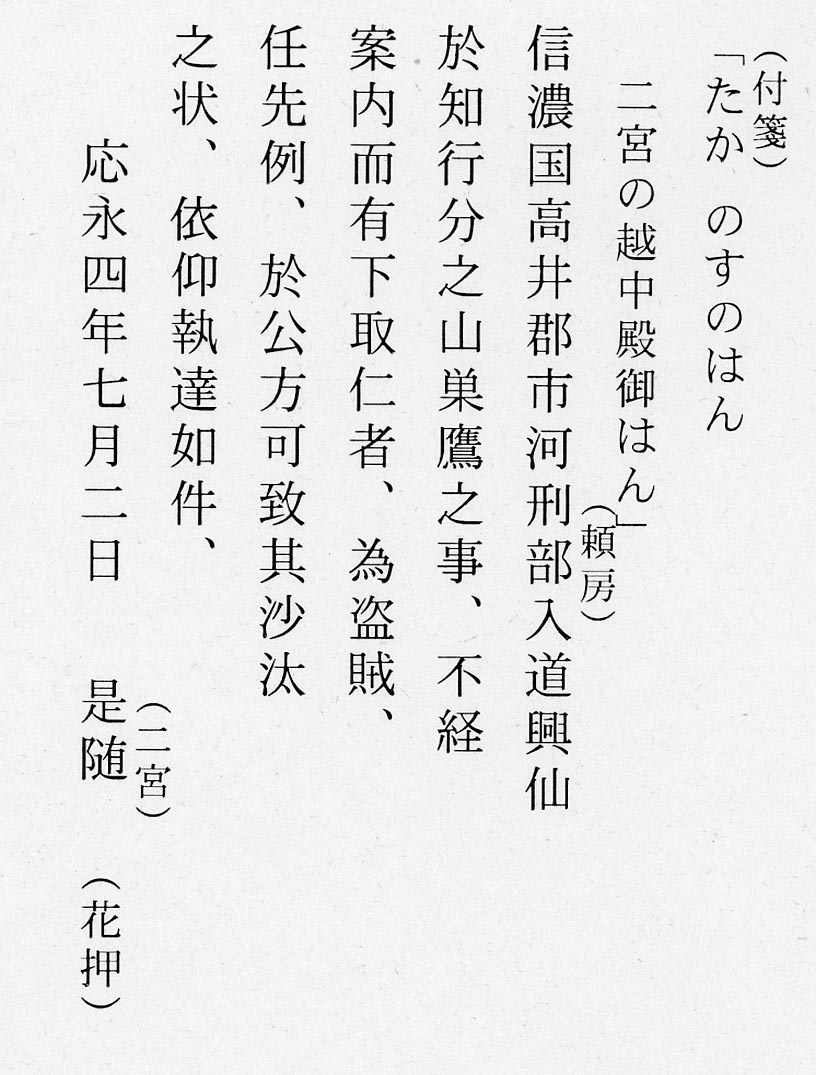 （付箋）
「たか　のすのはん
二宮の越中殿御はん」
（頼房）
信濃国高井郡市河刑部入道興仙
於知行分之山巣鷹之事、不経
案内而有下取仁者、為盗賊、
任先例、於公方可致其沙汰
之状、依仰執達如件、
（二宮）
応永四年七月二日　是随　（花押）